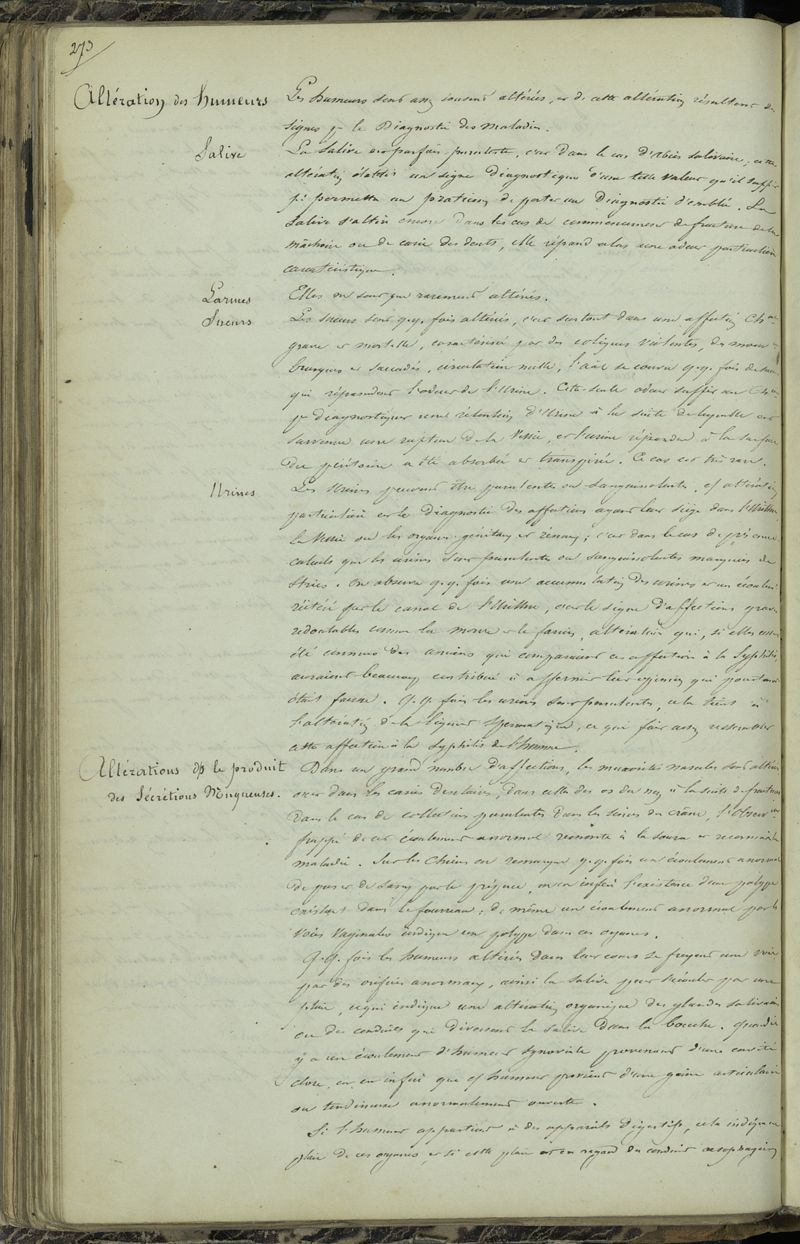 273
Altération des humeurs
Les humeurs sont assez souvent altérées, et de cette altération résultent des
signes pr le Diagnostic des maladies.
Salive
La Salive est parfois purulente, c'est dans le cas d'abcès salivaire, cette
altération établit un signe diagnostique d'une telle valeur qu'il suffit
pr permettre au praticien de porter un Diagnostic d'emblée. La
Salive s'altère encore dans les cas de commencement de fracture de la
mâchoire ou de carie des dents, elle répand alors une odeur particulière
caractéristique.
Larmes
Elles ne sont que rarement altérées.
Sueurs
Les sueurs sont q.q. fois altérées, c'est surtout dans une affection
grave et mortelle, caractérisée par des coliques violentes, des mouv
brusques et saccadés, circulation nulle, l'a se couvre q.q. fois de sueur
qui répandent l'odeur de l'Urine. Cette seule odeur suffit au
pr diagnostiquer une rétention d'Urine à la suite de laquelle est
survenue une rupture de la Vessie, et l'urine répandue à la surface
du péritoine a été absorbée et transpirée. Ce cas est très rare.
Urines
Les Urines peuvent être purulentes ou sanguinolentes, cs altération
particulière est le Diagnostic des affections ayant leur siège dans l'Urèthre
la Vessie ou les organes génitaux et rénaux; c'est dans le cas de présence
calculs que les urines sont purulentes ou sanguinolentes marquées de
Stries. On observe q.q. fois une accumulation des urines et un écoulem
réitéré par le canal de l'Urèthre, c'est le signe d'affections graves
redoutables comme la morve et le farcin, altération qui, si elles eussent
été connues des anciens qui comparaient ces affections à la Syphilis,
auraient beaucoup contribué à affermir leur opinion qui pourtant
était fausse. Q.q. fois les urines sont purulentes, cela tient à
l'altération de la liqueur Spermatique, ce que fait assez ressembler
cette affection à la syphilis de l'homme.
Altérations ds le produit
des Sécrétions Muqueuses.
Dans un grand nombre d'affections, les mucosités nasales sont altérées
c'est dans les caries dentaires, dans celle des os du nez à la suite de fractures
Dans le cas de collections purulentes dans les sinus du crâne, l'observ
frappé de cet écoulement anormal remonte à la source et reconnait la
maladie. Sur les Chiens on remarque q.q. fois un écoulement anormal
de pus et de sang par le prépuce, on en infère l'existence d'un polype
existant dans le fourreau; de même un écoulement anormal par les
Voies Vaginales indique un polype dans ces organes.
Q.q. fois les humeurs altérées dans leur cours se frayent une voie
par des orifices anormaux, ainsi la salive peut s'écouler par une
plaie, ce qui indique une altération organique des glandes salivaires
ou des conduits qui déversent la salive dans la bouche. Quand il
y a un écoulement d'humeur synoviale provenant d'une cavité
close, on en infère que cs humeur provient d'une gaîne articulaire
ou tendineuse anormalement ouverte.
Si l'humeur appartient à des appareils digestifs, cela indique
plaie de ces organes et si cette plaie est en regard du conduit œsophagien